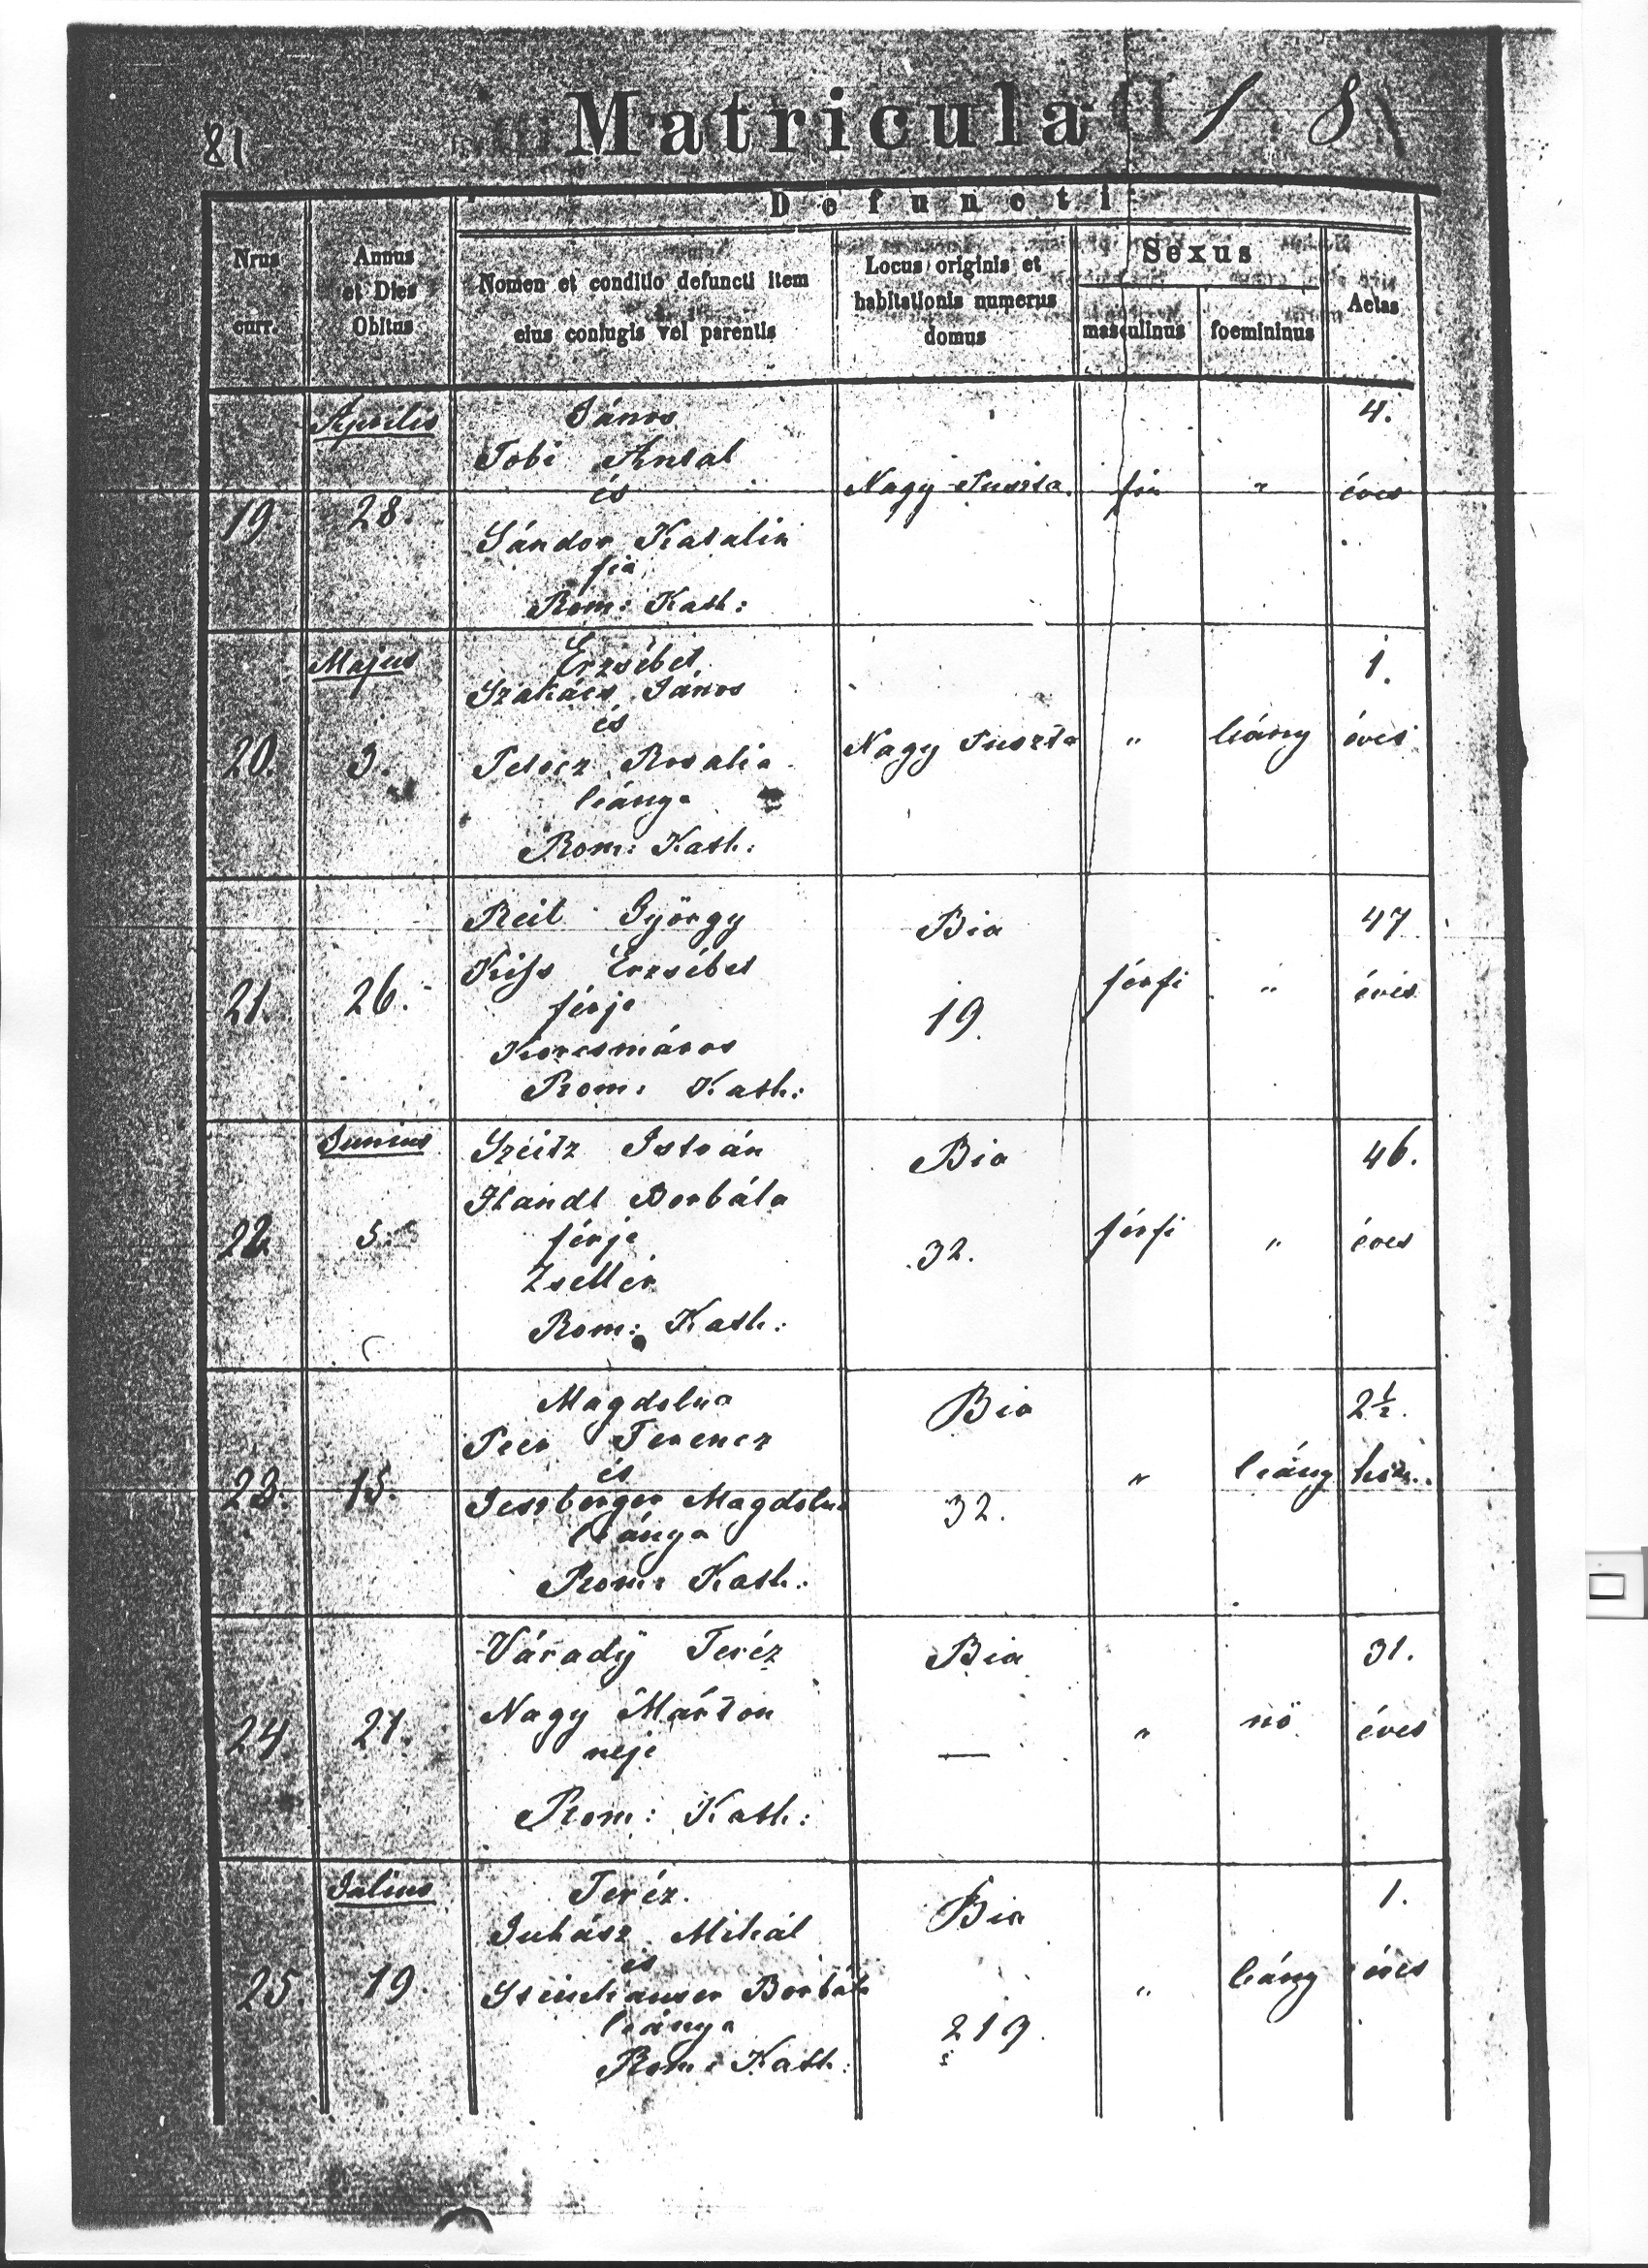 81
Matricula 1 8
Defuncti
Nrus curr.
Annus et Dies Obitus
Nomen et conditio defuncti item
eius coniugis vel parentis
Locus originis et
habitationis numerus
domus
Sexus
masculinus
foemininus
Aetas
Aprilis
János
4.
Tobi Antal
és
19. 28. Nagy Puszta. fiu " éves
Sándor Katalin
fia
Rom: Kath:
Majus
Erzsébet
1.
Szakács János
és
20. 3. Nagy Puszta " leány éves
Pelócz Rosalia
leánya
Rom: Kath:
Reit György Bia 47
Kiſs Erzsébet
21. 26. férje 19. férfi " éves
Korcsmáros
Rom: Kath:
Junius
Szeitz István Bia 46.
Handl Borbála
22. 5. férje 32. férfi " éves
Zsellér
Rom: Kath:
Magdolna Bia 2½.
Peer Ferencz
és
23. 15. 32. " leány
Magdolna
leánya
Rom: Kath:
Várady Teréz Bia 31.
24. 21. Nagy Márton — " nö éves
neje
Rom: Kath:
Julius
Teréz Bia 1.
Juhász Mihál
és
25. 19. Steinhauser Borbála 219. " leány éves
leánya
Rom: Kath: